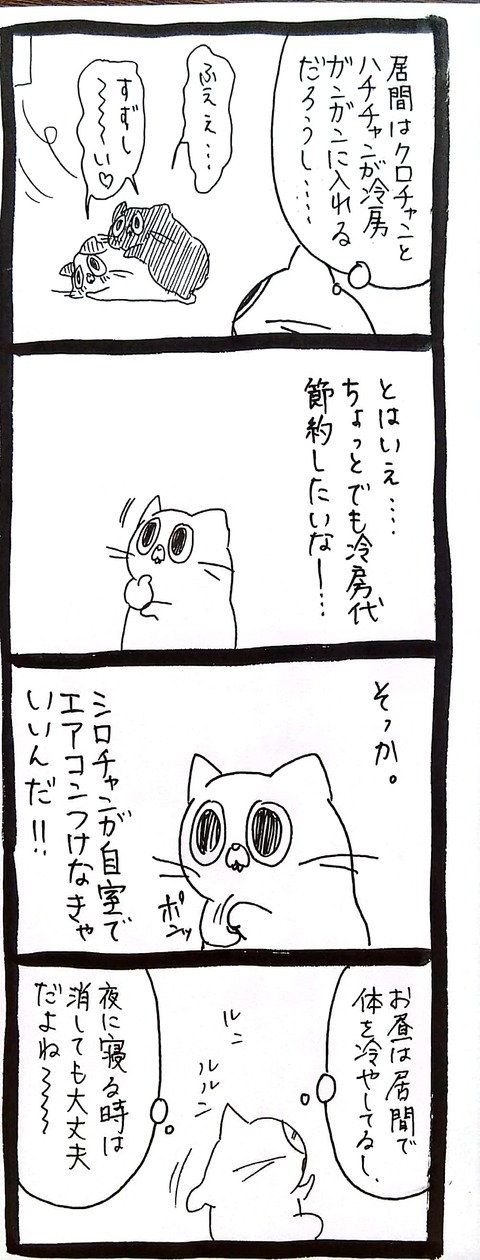 居間はクロチャンと
ハチチャンが冷房
ガンガンに入れる
だろうし....
ふぇぇ...
すずし
〜〜〜い♡
とはいえ....
ちょっとでも冷房代
節約したいなー...
そっか。
シロチャンが自室で
エアコンつけなきゃ
いいんだ!!
ポンッ
お昼は居間で
体を冷やしてるし、
ルン
ルルン
夜に寝る時は
消しても大丈夫
だよね〜〜〜